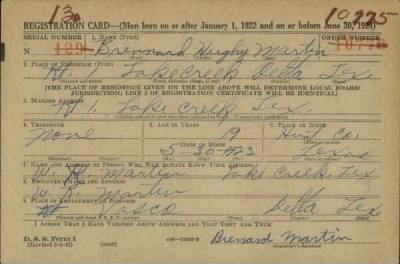 13 10,775
REGISTRATION CARD—(Men born on or after January 1, 1922 and on or before June 30, 1924)
SERIAL NUMBER 1. NAME (Print) ORDER NUMBER
N Brennard Hughy Martin
2. PLACE OF RESIDENCE (Print)
Rt. 1 Lake Creek Delta Tex
[THE PLACE OF RESIDENCE GIVEN ON THE LINE ABOVE WILL DETERMINE LOCAL BOARD
JURISDICTION; LINE 2 OF REGISTRATION CERTIFICATE WILL BE IDENTICAL]
3. MAILING ADDRESS
Rt 1. Lake Creek Tex
4. TELEPHONE 5. AGE IN YEARS 6. PLACE OF BIRTH
None 19 Hunt Co.
DATE OF BIRTH
5-30-1923 Texas
7. NAME AND ADDRESS OF PERSON WHO WILL ALWAYS KNOW YOUR ADDRESS
Martin Lake Creek, Tex
8. EMPLOYER'S NAME AND ADDRESS
Martin
9. PLACE OF EMPLOYMENT OR BUSINESS
Vasco Delta Tex
I AFFIRM THAT I HAVE VERIFIED ABOVE ANSWERS AND THAT THEY ARE TRUE.
D. S. S. Form 1
Brennard Martin